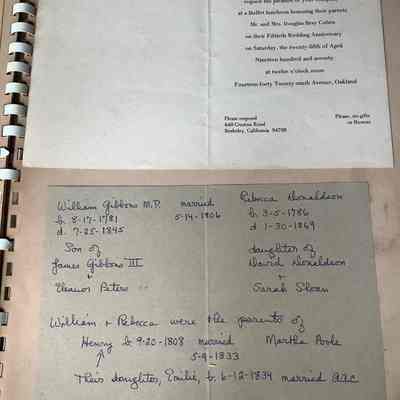 request the pleasure of your company
at a Buffet luncheon honoring their parents
Mr. and Mrs. Douglas Bray Cohen
on their Fiftieth Wedding Anniversary
on Saturday, the twenty-fifth of April
Nineteen hundred and seventy
at twelve o'clock noon
Fourteen-forty Twenty-ninth Avenue, Oakland
Please respond
Berkeley, California 94708
Please, no gifts
or flowers
William Gibbons M.D. married Rebecca Donaldson
b. 8-17-1781 5-14-1806 b. 3-5-1786
d. 7-25-1845 d. 1-30-1869
Son of daughter of
James Gibbons III David Donaldson
+ +
Eleanor Peters Sarah Sloan
William + Rebecca were the parents of
Henry b 9-20-1808 married Martha Poole
5-9-1833
This daughter, Emilie, b. 6-12-1834 married